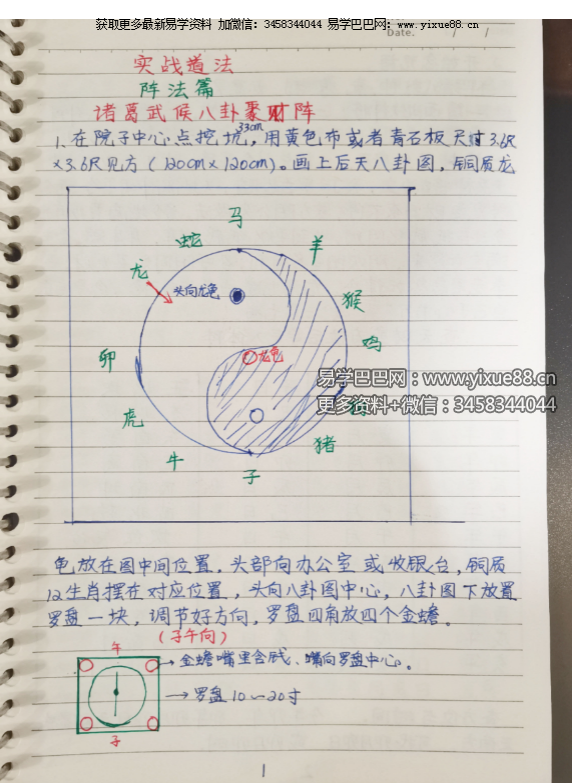 获取更多最新易学资料 加微信：3458344044 易学巴巴网：www.yixue88.cn
Date. / /
实战道法
阵法篇
诸葛武候八卦聚财阵
33cm
1、在院子中心点挖坑，用黄色布或者青石板尺寸3.6尺
×3.6尺见方（120cm×120cm）。画上后天八卦图，铜质龙
马
蛇
羊
龙
头向龙龟
猴
鸡
龙龟
卯
易学巴巴网：www.yixue88.cn
更多资料+微信：3458344044
虎
猪
牛
子
龟放在图中间位置，头部向办公室或收银台，铜质
12生肖摆在对应位置，头向八卦图中心，八卦图下放置
罗盘一块，调节好方向，罗盘四角放四个金蟾。
（子午向）
午
金蟾嘴里含钱、嘴向罗盘中心。
罗盘10～20寸
子
1